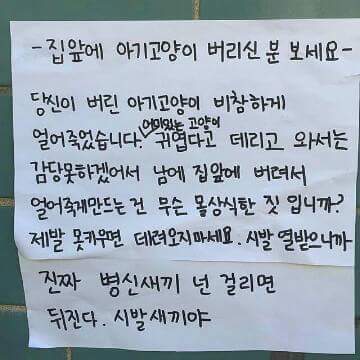 - 집앞에 아기고양이 버리신 분 보세요 -
당신이 버린 아기고양이 비참하게
어미있는 고양이
얼어죽었습니다. 귀엽다고 데리고 와서는
감당못하겠어서 남에 집앞에 버려서
얼어죽게만드는 건 무슨 몰상식한 짓 입니까?
제발 못키우면 데려오지마세요. 시발 열받으니까
진짜 병신새끼 넌 걸리면
뒤진다. 시발새끼야